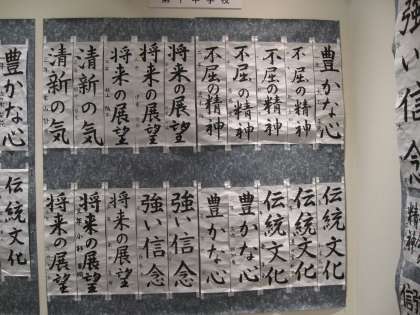 第十中学校
強い信念
豊かな心
不屈の精神
不屈の精神
不屈の精神
不屈の精神
将来の展望
将来の展望
将来の展望
清新の気
清新の気
伝統文化
伝統文化
伝統文化
豊かな心
豊かな心
強い信念
強い信念
将来の展望
将来の展望
将来の展望
豊かな心
伝統文化